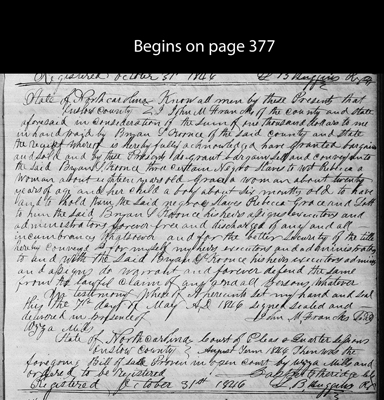 Begins on page 377
Registered October 31st 1846 L B Huggins Regr
State of North Carolina Know all men by these Presents that
Onslow County I John M Francks of the county and State
aforesaid in consideration of the Sum of one thousand dollars to me
in hand paid by Bryan S Koonce of the said County and State
the receipt whereof is hereby fully acknowledged have granted bargain
and sold and by these Presents do grant bargain sell and convey unto
the said Bryan S Koonce two certain Negro Slaves to wit Rebecca a
Woman about sixteen years old Grace a woman about twenty
years of age and her child a boy about six months old to have
and to hold them the said negroe Slaves Rebecca Grace and
to him the said Bryan S Koonce his heirs assigns executors and
administrators forever free and discharged of any and all
incumbrance whatsoever and for the better security of the title
hereby conveyed I for myself my heirs executors and administrators
to and with the said Bryan S Koonce his heirs executors admin
and assigns do warrant and forever defend the same
from the lawful claim of any and all persons whatever
In testimony whereof I hereunto set my hand and seal
this the 7th day of May AD 1846 signed sealed and
delivered in presence of John M Francks
Ezra Mills
State of North Carolina Court of Pleas & Quarter Sessions
Onslow County August Term 1846 Then was the
foregoing Bill of Sale Proven in open court by Ezra Mills and
ordered to be registered
Registered October 31st 1846 L B Huggins Regr